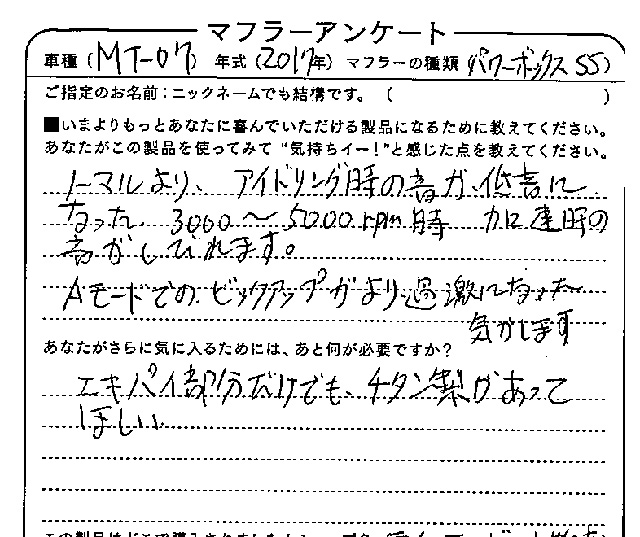 マフラーアンケート
車種（MT-07）年式（2017年）マフラーの種類（パワーボックスSS）
ご指定のお名前：ニックネームでも結構です。（　　　）
■いまよりもっとあなたに喜んでいただける製品になるために教えてください。
あなたがこの製品を使ってみて“気持ちイー！”と感じた点を教えてください。
ノーマルより、アイドリング時の音が、低音に
なった 3000～5000rpm時 加速時の
音がしびれます。
Aモードでのピックアップがより過激になった
気がします
あなたがさらに気に入るためには、あと何が必要ですか？
エキパイ部分だけでも、チタン製があって
ほしい